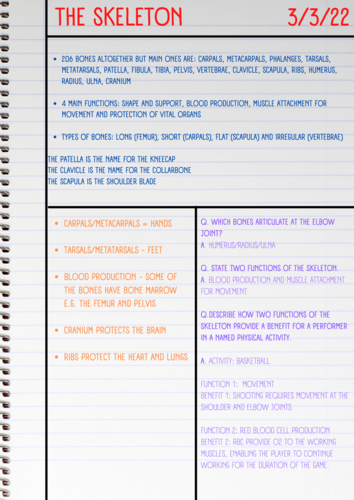 THE SKELETON 3/3/22
• 206 BONES ALTOGETHER BUT MAIN ONES ARE: CARPALS, METACARPALS, PHALANGES, TARSALS,
METATARSALS, PATELLA, FIBULA, TIBIA, PELVIS, VERTEBRAE, CLAVICLE, SCAPULA, RIBS, HUMERUS,
RADIUS, ULNA, CRANIUM
• 4 MAIN FUNCTIONS: SHAPE AND SUPPORT, BLOOD PRODUCTION, MUSCLE ATTACHMENT FOR
MOVEMENT AND PROTECTION OF VITAL ORGANS
• TYPES OF BONES: LONG (FEMUR), SHORT (CARPALS), FLAT (SCAPULA) AND IRREGULAR (VERTEBRAE)
THE PATELLA IS THE NAME FOR THE KNEECAP
THE CLAVICLE IS THE NAME FOR THE COLLARBONE
THE SCAPULA IS THE SHOULDER BLADE
• CARPALS/METACARPALS = HANDS
• TARSALS/METATARSALS - FEET
• BLOOD PRODUCTION - SOME OF
THE BONES HAVE BONE MARROW
E.G. THE FEMUR AND PELVIS
• CRANIUM PROTECTS THE BRAIN
• RIBS PROTECT THE HEART AND LUNGS
Q. WHICH BONES ARTICULATE AT THE ELBOW
JOINT?
A. HUMERUS/RADIUS/ULNA
Q. STATE TWO FUNCTIONS OF THE SKELETON.
A. BLOOD PRODUCTION AND MUSCLE ATTACHMENT
FOR MOVEMENT
Q.DESCRIBE HOW TWO FUNCTIONS OF THE
SKELETON PROVIDE A BENEFIT FOR A PERFORMER
IN A NAMED PHYSICAL ACTIVITY.
A. ACTIVITY: BASKETBALL
FUNCTION 1: MOVEMENT
BENEFIT 1: SHOOTING REQUIRES MOVEMENT AT THE
SHOULDER AND ELBOW JOINTS
FUNCTION 2: RED BLOOD CELL PRODUCTION
BENEFIT 2: RBC PROVIDE O2 TO THE WORKING
MUSCLES, ENABLING THE PLAYER TO CONTINUE
WORKING FOR THE DURATION OF THE GAME.